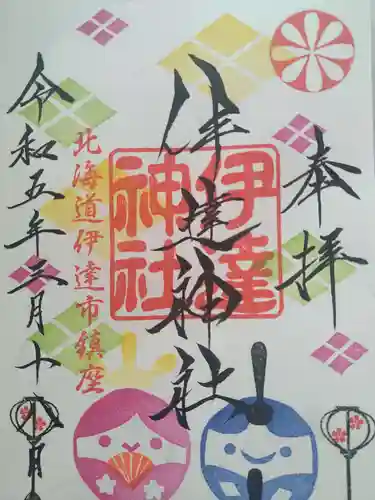 奉拝
伊達神社
伊達神社
北海道伊達市鎮座
令和五年三月十八日